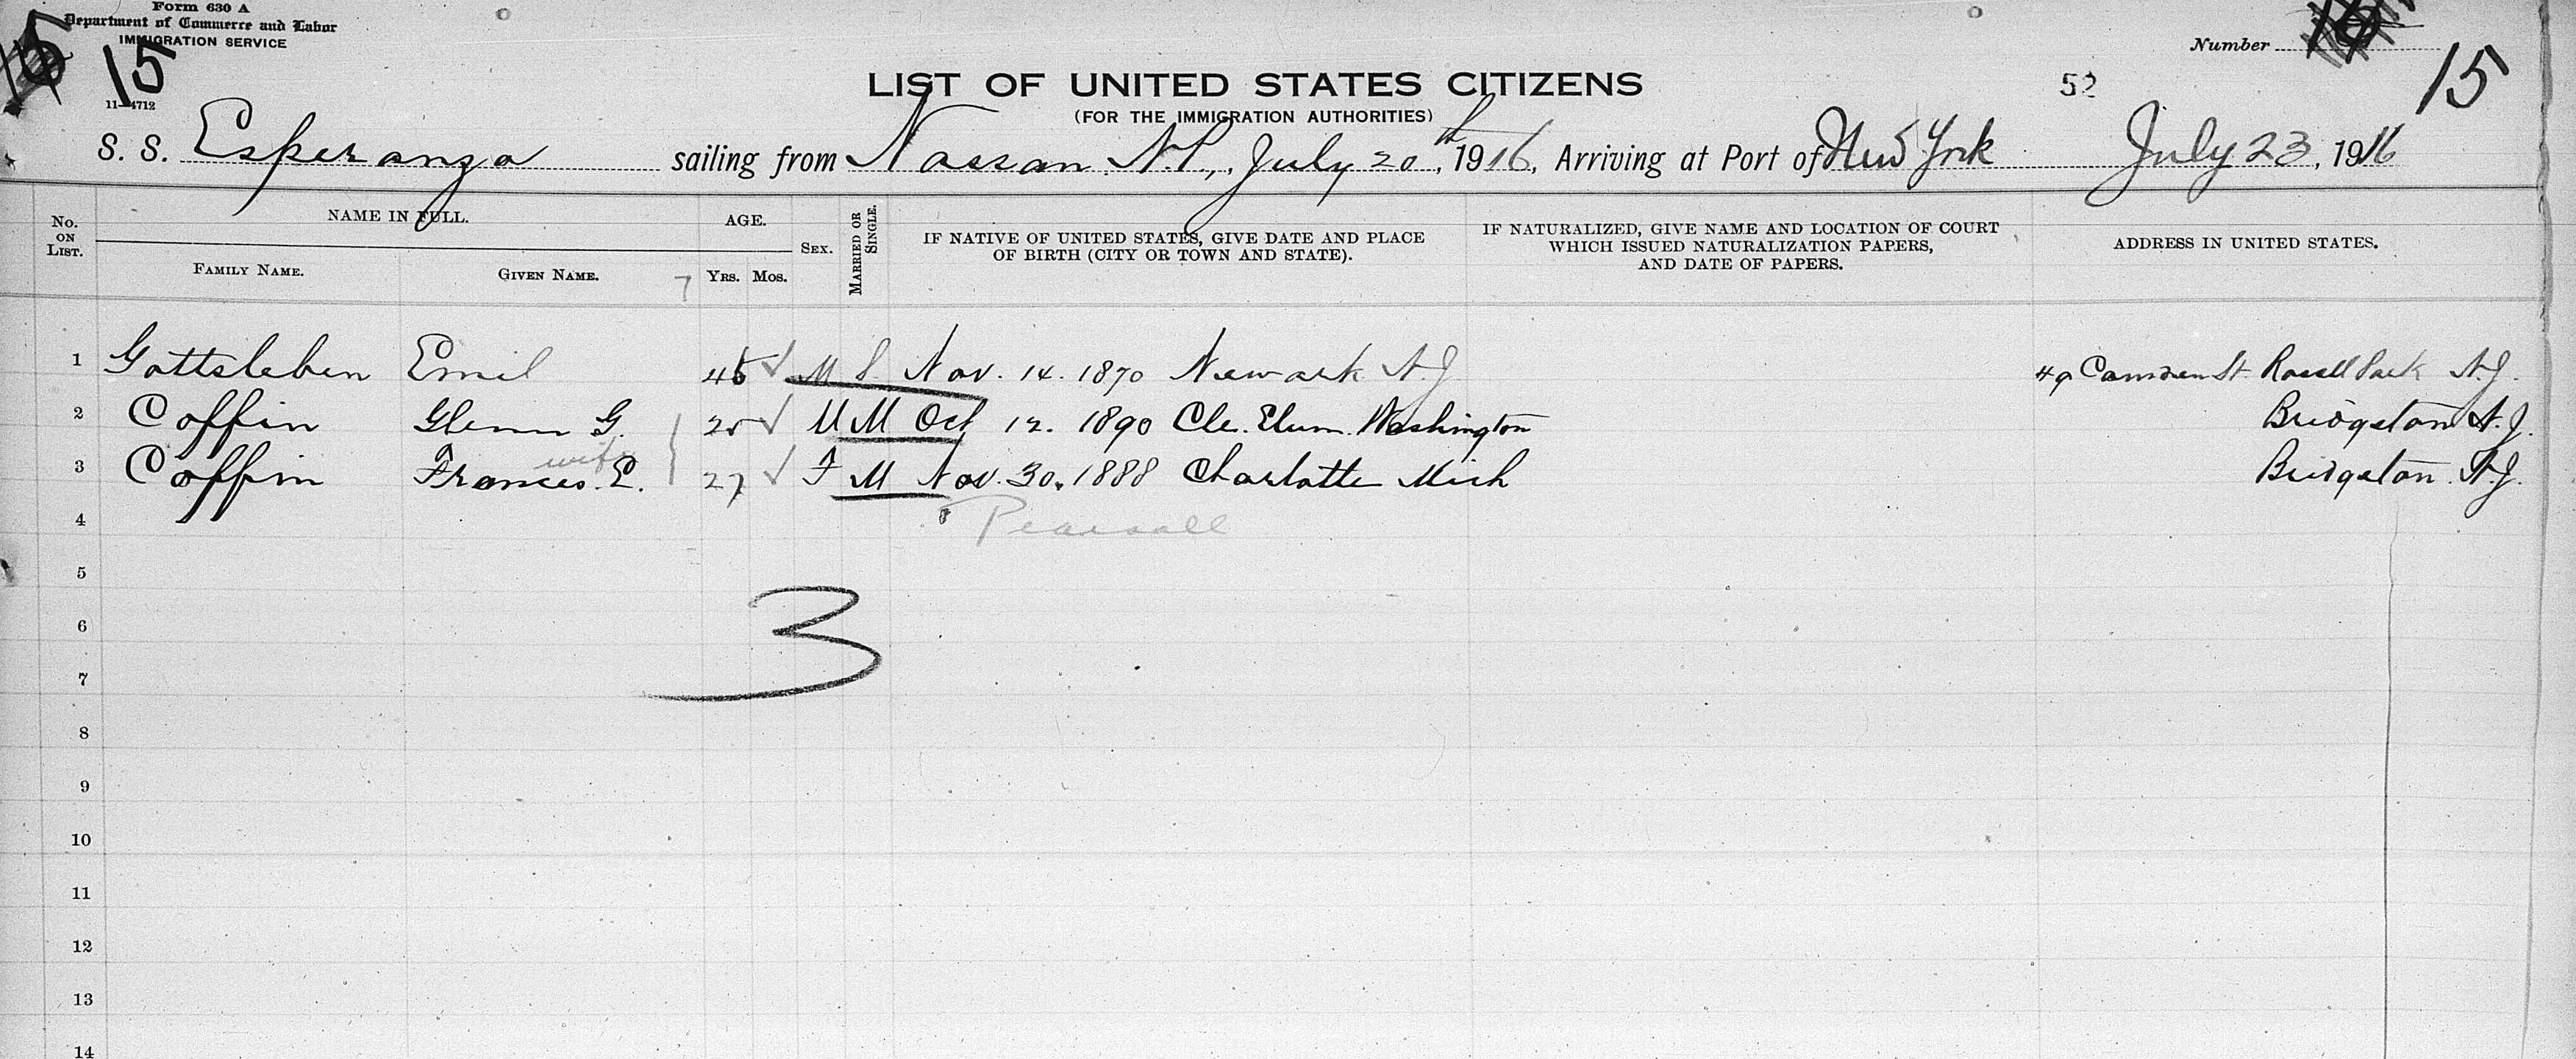 Form 630 A
Department of Commerce and Labor
IMMIGRATION SERVICE
15
11—4712
Number
15
52
LIST OF UNITED STATES CITIZENS
(FOR THE IMMIGRATION AUTHORITIES)
S. S. Esperanza sailing from Nassau N.P., July 20th, 1916, Arriving at Port of New York July 23, 1916
No. ON LIST.
NAME IN FULL.
FAMILY NAME.
GIVEN NAME.
7
AGE.
YRS. MOS.
SEX.
MARRIED OR SINGLE.
IF NATIVE OF UNITED STATES, GIVE DATE AND PLACE
OF BIRTH (CITY OR TOWN AND STATE).
IF NATURALIZED, GIVE NAME AND LOCATION OF COURT
WHICH ISSUED NATURALIZATION PAPERS,
AND DATE OF PAPERS.
ADDRESS IN UNITED STATES.
1 Gottsleben Emil M S Nov. 14. 1870 Newark N.J 49 Camden St. Rosell Park N.J.
2 Coffin Glenn G. 25 M M Oct 12. 1890 Cle. Elum. Washington Bridgeton N.J.
wife
3 Coffin Frances. E. 27 F M Nov. 30. 1888 Charlotte Mich Bridgeton. N.J.
4 Pearsall
5
3
6
7
8
9
10
11
12
13
14